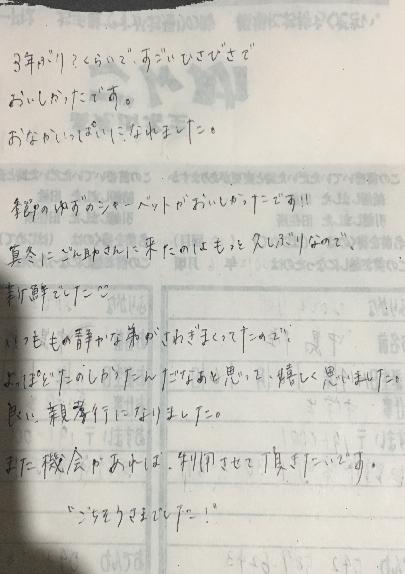 3年ぶり?くらいで、すごいひさびさで
おいしかったです。
おなかいっぱいになれました。
季節のゆずのシャーベットがおいしかったです!!
真冬にごん助さんに来たのはもっと久しぶりなので、
新鮮でした
いつもの静かな弟がさわぎまくってたので、
よっぽどたのしかったんだなあと思って、嬉しく思いました。
良い親孝行になりました。
また機会があれば、利用させて頂きたいです。
"ごちそうさまでした!"